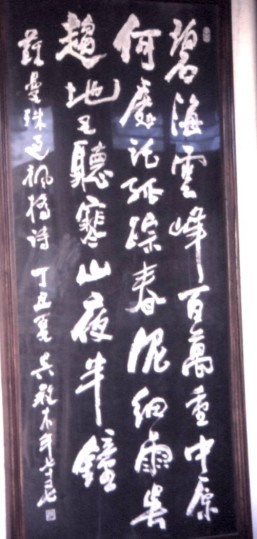 碧海雲峰百萬重中原
何處託孤踪春泥細雨吳
趨地又聽寒山夜半鐘
蘇曼殊過楓橋詩 丁丑夏 吳